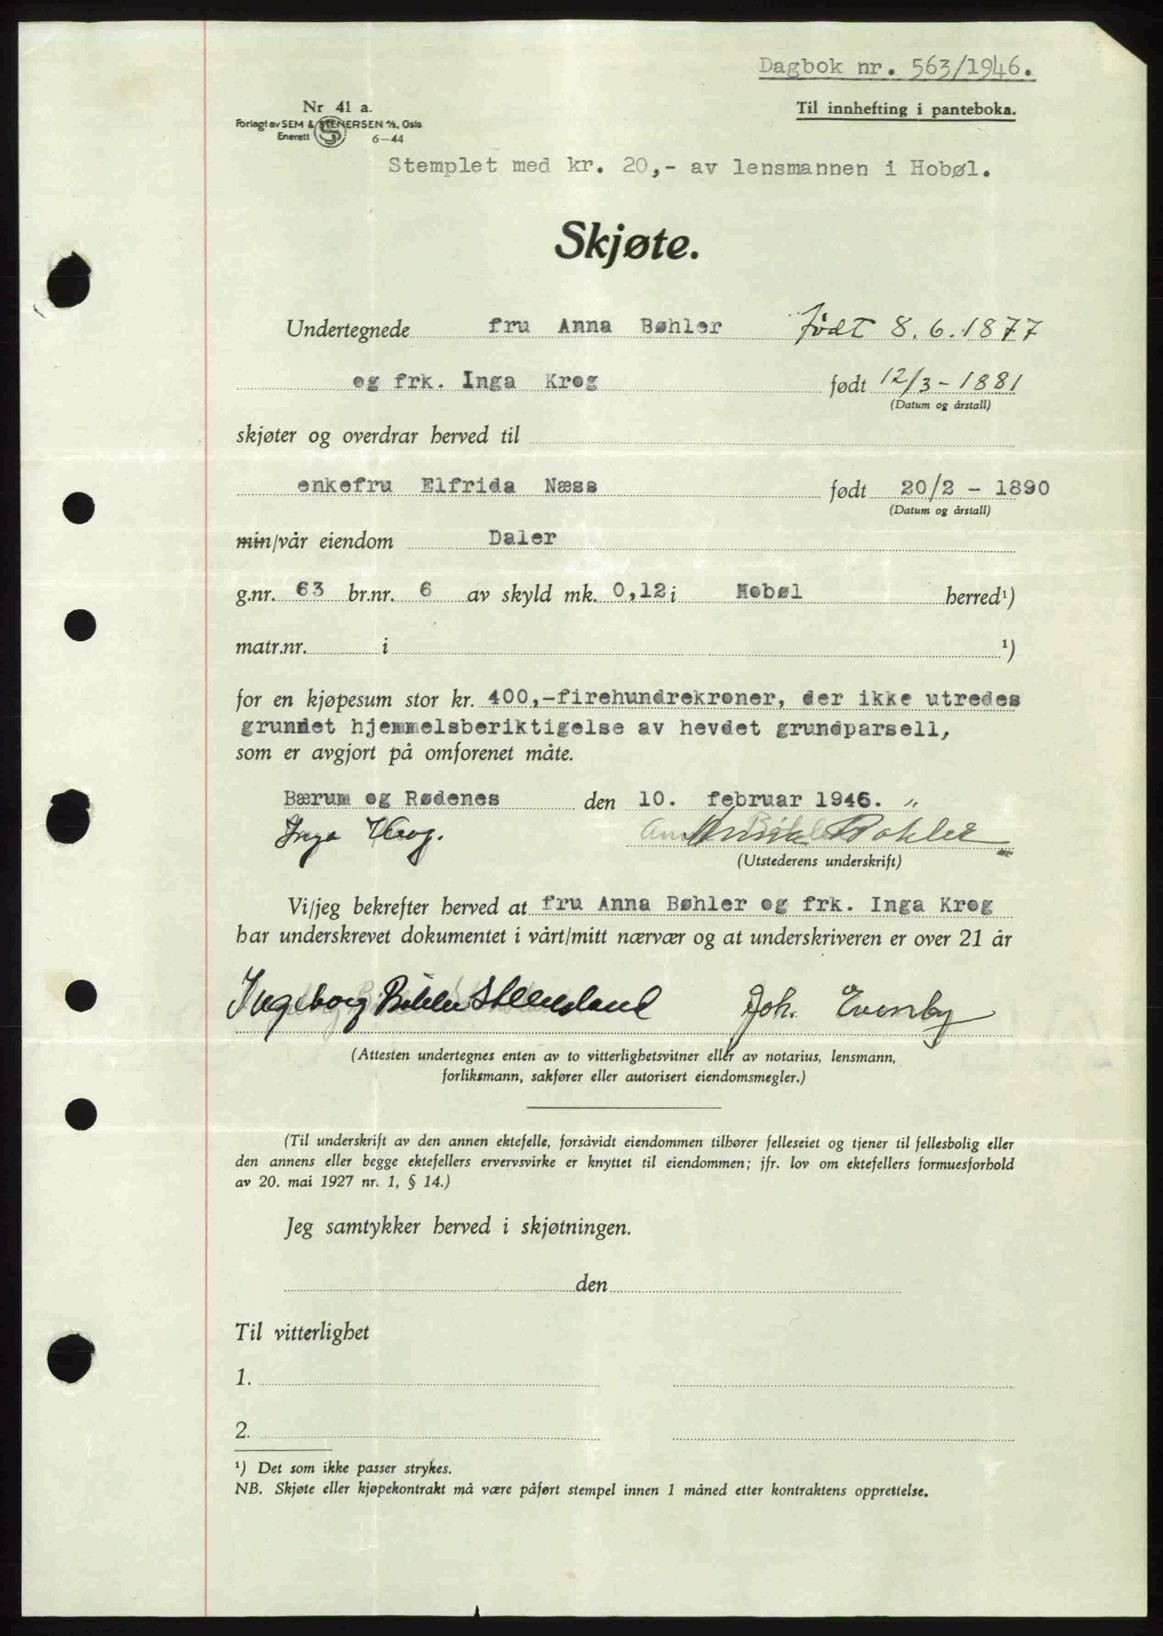 Dagbok nr. 563/1946.
Nr 41 a.
Til innhefting i panteboka.
Forlagt av SEM & STENERSEN A/S, Oslo
Enerett 6-44
Stemplet med kr. 20,- av lensmannen i Hobøl.
Skjøte.
Undertegnede fru Anna Bøhler født 8.6.1877
og frk. Inga Krog født 12/3-1881
(Datum og årstall)
skjøter og overdrar herved til
enkefru Elfrida Næss født 20/2 - 1890
(Datum og årstall)
min/vår eiendom Daler
g.nr. 63 br.nr. 6 av skyld mk. 0,12 i Hobøl herred¹)
matr.nr. i ¹)
for en kjøpesum stor kr. 400,-firehundrekroner, der ikke utredes
grunnet hjemmelsberiktigelse av hevdet grundparsell,
som er avgjort på omforenet måte.
Bærum og Rødenes den 10. februar 1946. "
Inga Krog. Anna Bøhler
(Utstederens underskrift)
Vi/jeg bekrefter herved at fru Anna Bøhler og frk. Inga Krog
har underskrevet dokumentet i vårt/mitt nærvær og at underskriveren er over 21 år
Ingeborg Bøhler Steensland Joh. Evenby
(Attesten undertegnes enten av to vitterlighetsvitner eller av notarius, lensmann,
forliksmann, sakfører eller autorisert eiendomsmegler.)
(Til underskrift av den annen ektefelle, forsåvidt eiendommen tilhører felleseiet og tjener til fellesbolig eller
den annens eller begge ektefellers ervervsvirke er knyttet til eiendommen; jfr. lov om ektefellers formuesforhold
av 20. mai 1927 nr. 1, § 14.)
Jeg samtykker herved i skjøtningen.
den
Til vitterlighet
1.
2.
¹) Det som ikke passer strykes.
NB. Skjøte eller kjøpekontrakt må være påført stempel innen 1 måned etter kontraktens opprettelse.